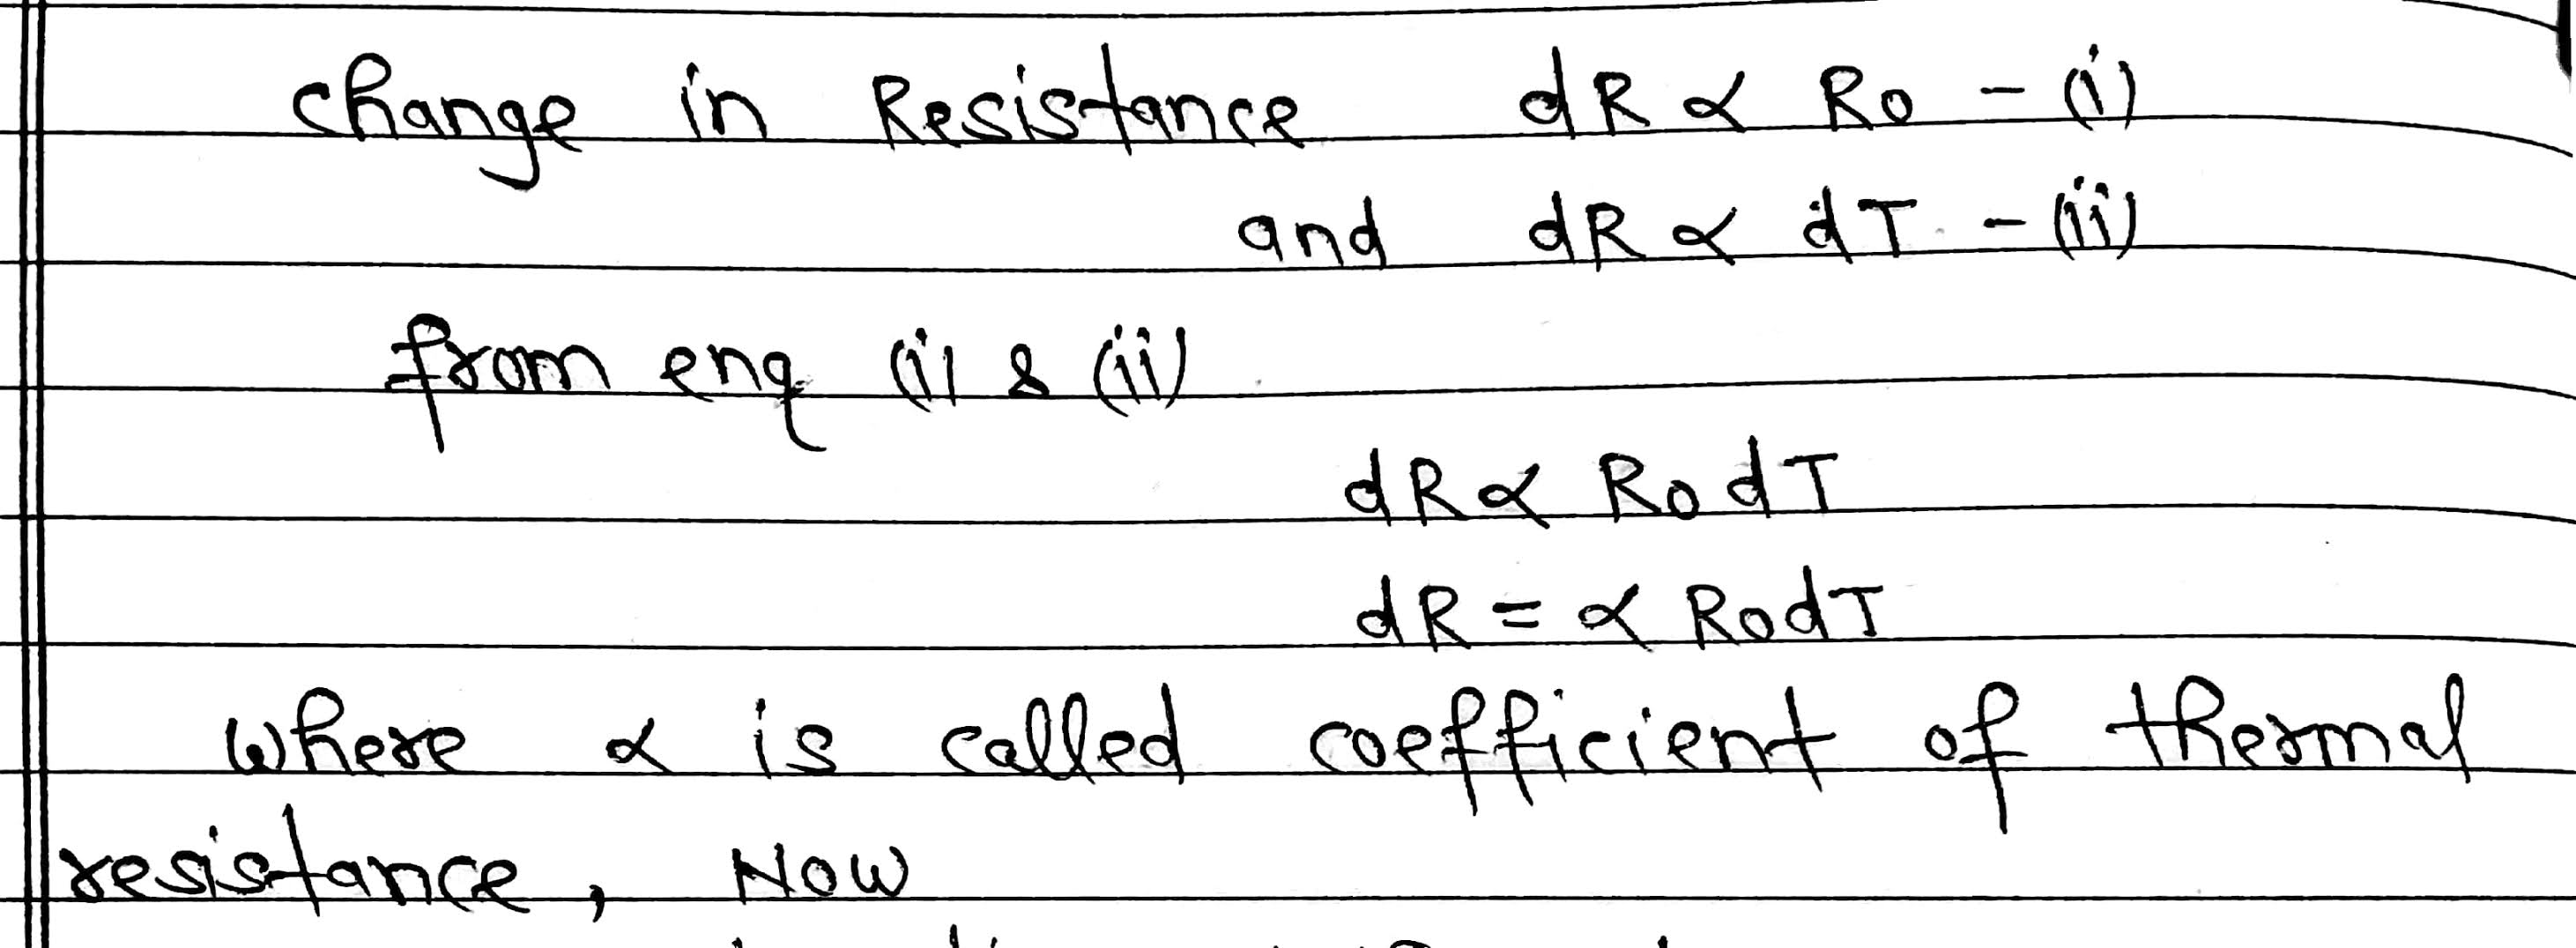 change in Resistance dR ∝ Ro - (i)
and dR ∝ dT - (ii)
from enq (i) & (ii)
dR ∝ Ro dT
dR = α RodT
where α is called coefficient of thermal
resistance, Now